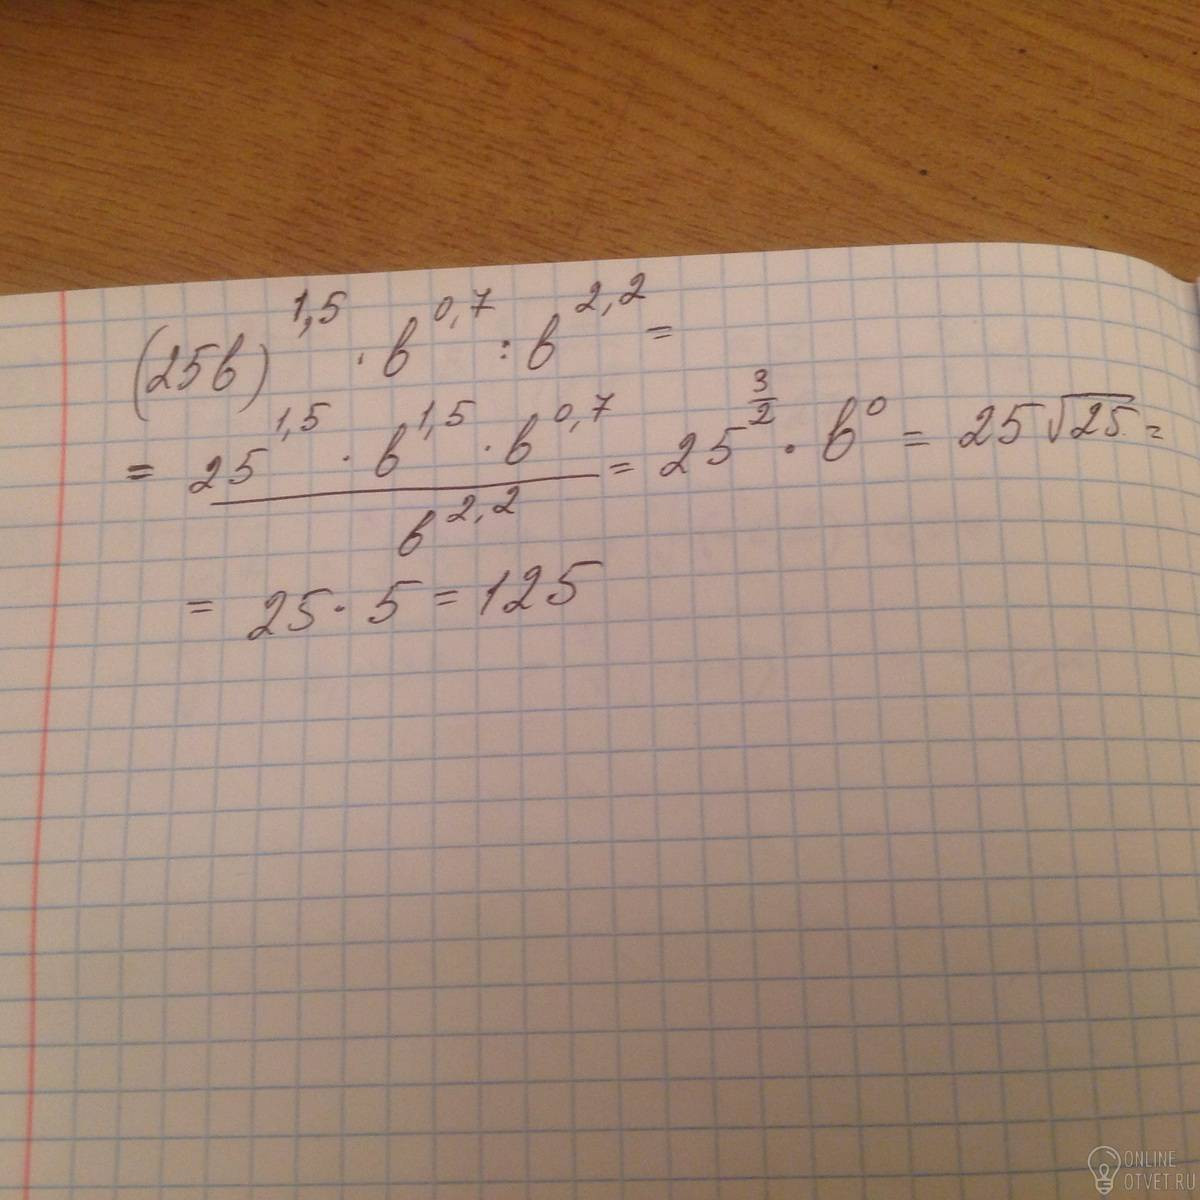 (25b)^{1,5} · b^{0,7} : b^{2,2} =
= \frac{25^{1,5} · b^{1,5} · b^{0,7}}{b^{2,2}} = 25^{\frac{3}{2}} · b^0 = 25\sqrt{25} =
= 25 · 5 = 125
ONLINE
OTVET.RU